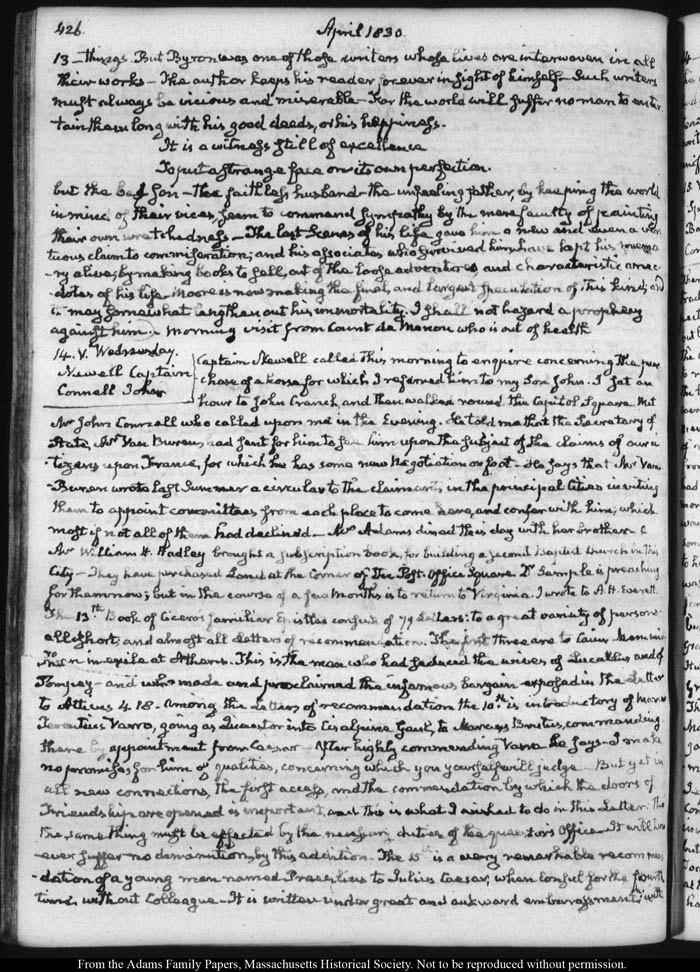 426.
April 1830.
13 — things. But Byron was one of those writers whose lives are interwoven in all
their works — The author keeps his reader forever in sight of himself — Such writers
must always be vicious and miserable — For the world will suffer no man to enter-
tain them long with his good deeds, or his happiness.
It is a witness still of excellence
To put a strange face on its own perfection.
but the bad son — the faithless husband — the unfeeling father, by keeping the world
in mind of their vices, seem to command sympathy by the mere faculty of painting
their own wretchedness — The last Scenes of his life, gave him a new and even a vir-
tuous claim to commiseration; and his associates who survived him have kept his memo-
-ry alive, by making books to sell, out of the loose adventures and characteristic anec-
dotes of his life. Moore is now making the final, and largest speculation of this kind; and
it may somewhat lengthen out his immortality. I shall not hazard a prophecy
against him. Morning visit from Count de Menou who is out of health
14. V. Wednesday.
Newell Captain
Connell John
Captain Newell called this morning to enquire concerning the pur-
chase of a horse for which I referred him to my Son John. I sat an
hour to John Cranch, and then walked round the Capitol Square. Met
Mr John Connell who called upon me in the Evening. He told me that the Secretary of
State, Mr Van Buren, had sent for him to see him upon the subject of the claims of our ci-
-tizens upon France, for which he has some new Negotiation on foot — He says that Mr Van
-Buren wrote last Summer a circular to the claimants, in the principal Cities inviting
them to appoint committees from each place to come here, and confer with him, which
most if not all of them had declined — Mrs Adams dined this day with her brother.
Mr William H. Hadley brought a subscription book, for building a second Baptist Church in this
City — They have purchased Land at the Corner of the Post-Office Square. Dr Sample is preaching
for them now; but in the course of a few Months is to return to Virginia. I wrote to A. H. Everett.
The 13th Book of Cicero's familiar Epistles consists of 79 Letters: to a great variety of persons
all short; and almost all Letters of recommendation. The first three are to Caius Memmius
then in exile at Athens. This is the man who had seduced the wives of Lucullus and of
Pompey — and who made and proclaimed the infamous bargain exposed in the Letter
to Atticus 4. 18. Among the Letters of recommendation the 10th is introductory of Marcus
Terentius Varro, going as Quaestor into Cisalpine Gaul, to Marcus Brutus, commanding
there by appointment from Caesar — After highly commending Varro he says — I make
no promises for him of qualities, concerning which you yourself will judge — But yet in
all new connections, the first access, and the commendation by which the doors of
Friendship are opened is important, and this is what I wished to do in this Letter. Tho'
the same thing must be effected by the necessary duties of the quaestor's Office — It will how
-ever suffer no diminution, by this addition — The 15th is a very remarkable recommen
-dation of a young man named Precilius to Julius Caesar, when Consul for the fourth
time, without Colleague — It is written under great and awkward embarrassment; with
From the Adams Family Papers, Massachusetts Historical Society. Not to be reproduced without permission.